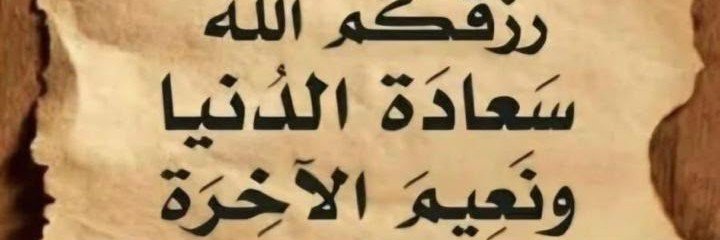 رزقكم الله
سَعادَة الدُنيا
ونَعِيمَ الآخِرَة